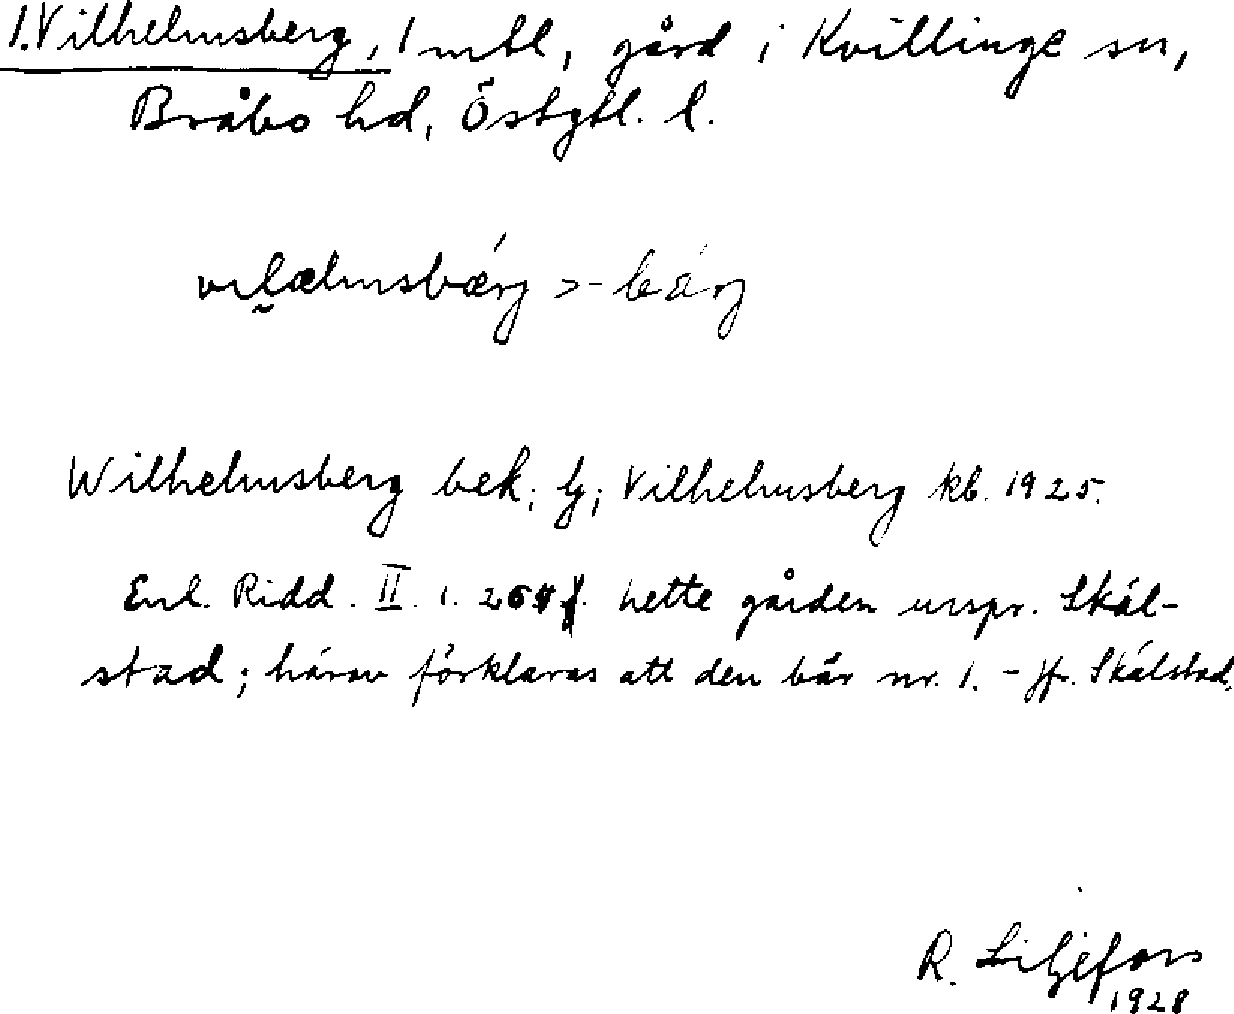 1. Vilhelmsberg, 1 mtl, gård i Kvillinge sn,
Bråbo hd, Östgtl. l.
vilælmsbærj >- bárj
Wilhelmsberg bek; Vilhelmsberg kb. 1925.
Enl. Ridd. II. 1. hette gården urspr. Skäl-
stad; härav förklaras att den bär nr. 1. - Jfr. Skälstad.
R. Liljefors
1928